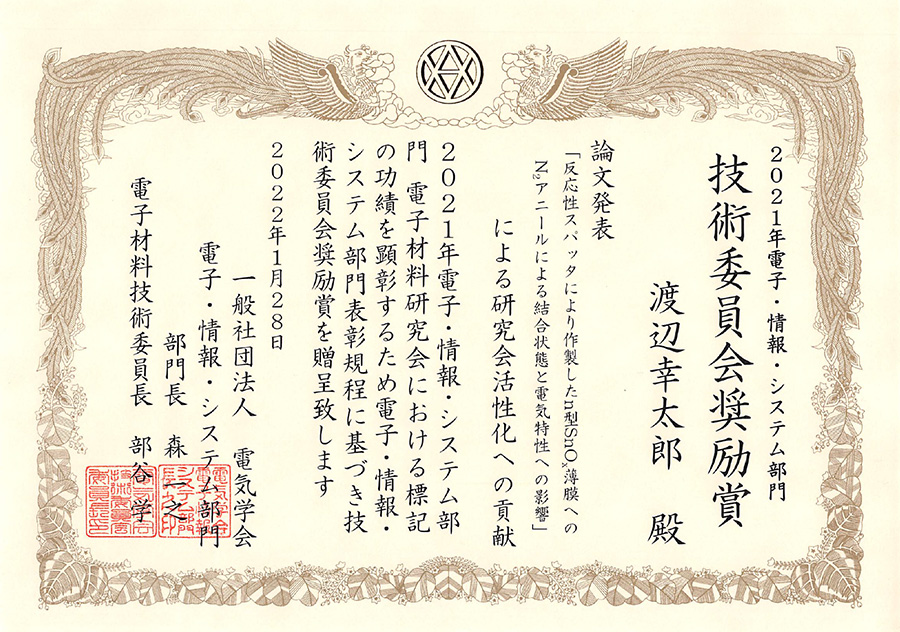 2021年電子・情報・システム部門
技術委員会奨励賞
渡辺幸太郎 殿
論文発表
「反応性スパッタにより作製したn型SnOx薄膜への
N₂アニールによる結合状態と電気特性への影響」
による研究会活性化への貢献
2021年電子・情報・システム部
門 電子材料研究会における標記
の功績を顕彰するため電子・情報・
システム部門表彰規程に基づき技
術委員会奨励賞を贈呈致します
2022年1月28日
一般社団法人 電気学会
電子・情報・システム部門
部門長 森 一之
電子材料技術委員長 部谷 学